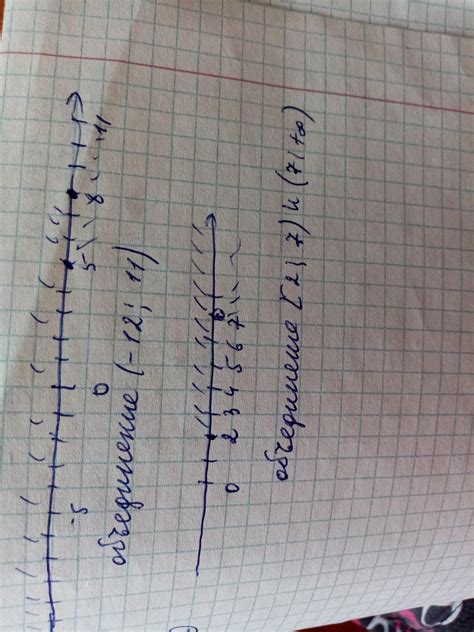 -5 0 5 8 11
объединение (-12; 11)
0 2 3 4 5 6 7
объединение [2; 7) и (7; +∞)